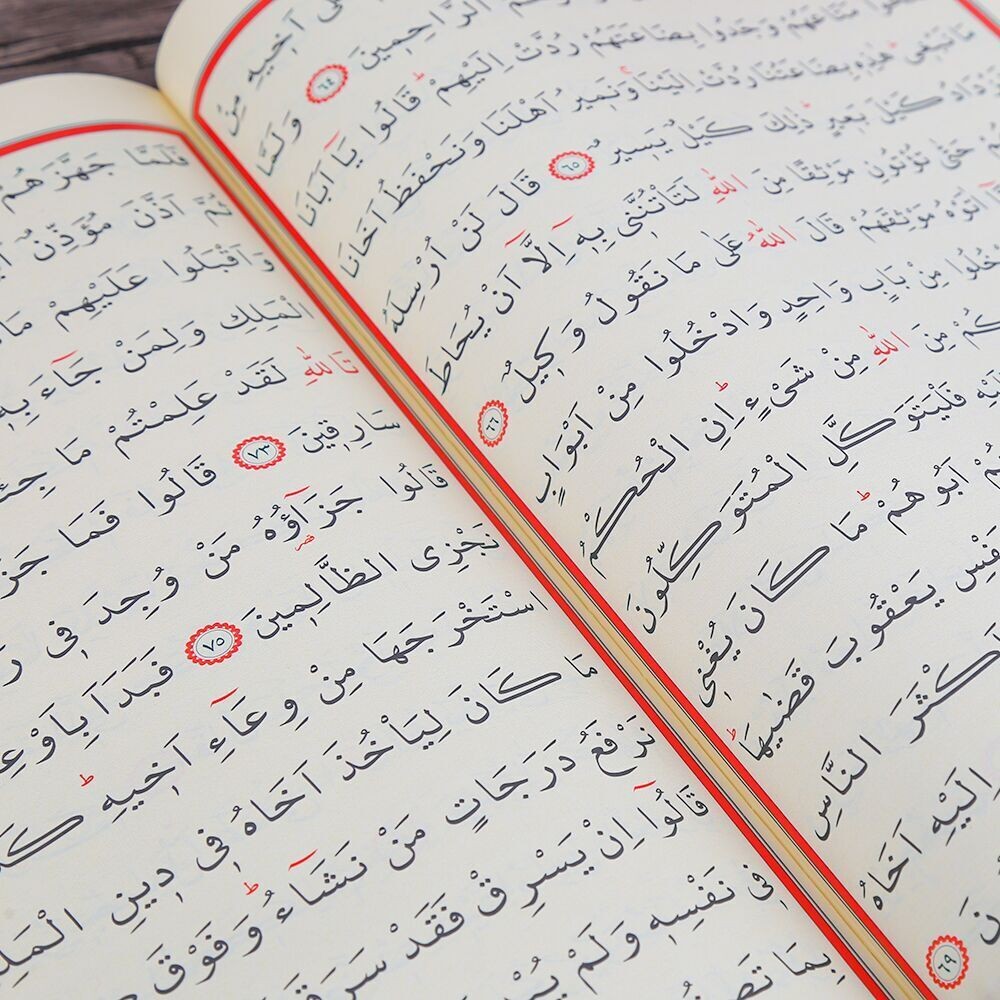 اَخ۪يهِ مِنْ
الرَّاحِم۪ينَ ﴿٦٤﴾ وَلَمَّا
مَتَاعَهُمْ وَجَدُوا بِضَاعَتَهُمْ رُدَّتْ اِلَيْهِمْ قَالُوا يَٓا اَبَانَا
مَا نَبْغ۪ي هٰذِه۪ بِضَاعَتُنَا رُدَّتْ اِلَيْنَا وَنَم۪يرُ اَهْلَنَا وَنَحْفَظُ اَخَانَا
كَيْلَ بَع۪يرٍ ذٰلِكَ كَيْلٌ يَس۪يرٌ ﴿٦٥﴾ قَالَ لَنْ اُرْسِلَهُ
حَتّٰى تُؤْتُونِ مَوْثِقًا مِنَ اللّٰهِ لَتَأْتُنَّن۪ي بِه۪ٓ اِلَّٓا اَنْ يُحَاطَ
اٰتَوْهُ مَوْثِقَهُمْ قَالَ اللّٰهُ عَلٰى مَا نَقُولُ وَك۪يلٌ ﴿٦٦﴾
مِنْ بَابٍ وَاحِدٍ وَادْخُلُوا مِنْ اَبْوَابٍ
مِنَ اللّٰهِ مِنْ شَيْءٍ اِنِ الْحُكْمُ
فَلْيَتَوَكَّلِ الْمُتَوَكِّلُونَ
اَبُوهُمْ مَا كَانَ يُغْن۪ي
يَعْقُوبَ قَضٰيهَا
اَكْثَرَ النَّاسِ
اِلَيْهِ اَخَاهُ
﴿٦٩﴾
فَلَمَّا جَهَّزَهُمْ
ثُمَّ اَذَّنَ مُؤَذِّنٌ
وَاَقْبَلُوا عَلَيْهِمْ
الْمَلِكِ وَلِمَنْ جَٓاءَ بِه۪
تَاللّٰهِ لَقَدْ عَلِمْتُمْ مَا
سَارِق۪ينَ ﴿٧٣﴾ قَالُوا فَمَا
قَالُوا جَزَٓاؤُ۬هُ مَنْ وُجِدَ ف۪ي
نَجْزِي الظَّالِم۪ينَ ﴿٧٥﴾ فَبَدَاَ
اسْتَخْرَجَهَا مِنْ وِعَٓاءِ اَخ۪يهِ
مَا كَانَ لِيَأْخُذَ اَخَاهُ ف۪ي د۪ينِ
نَرْفَعُ دَرَجَاتٍ مَنْ نَشَٓاءُ وَفَوْقَ
قَالُٓوا اِنْ يَسْرِقْ فَقَدْ سَرَقَ
ف۪ي نَفْسِه۪ وَلَمْ
بِمَا